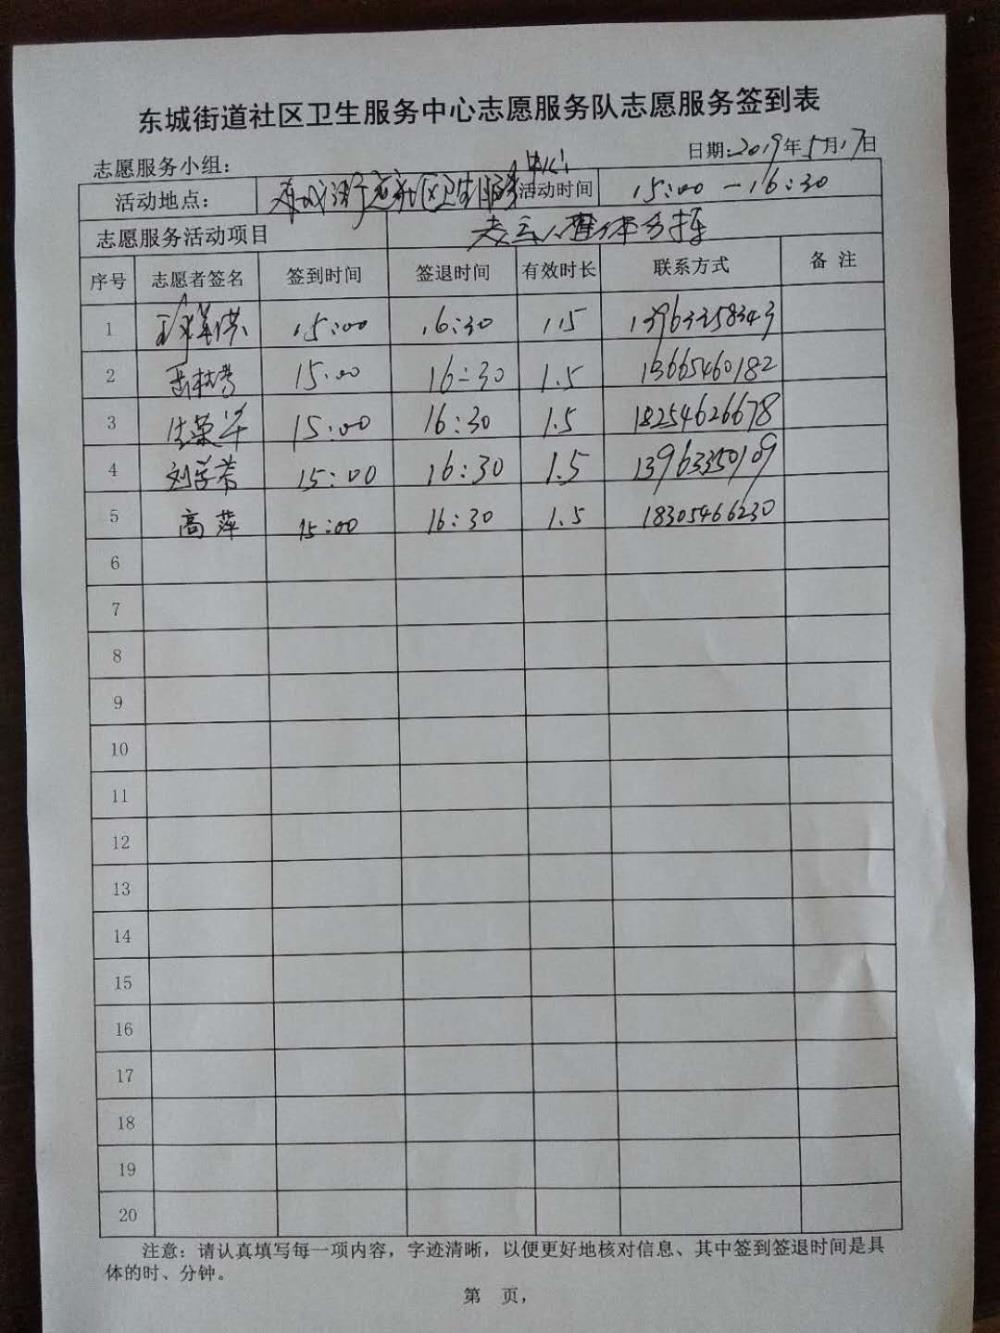 东城街道社区卫生服务中心志愿服务队志愿服务签到表
志愿服务小组： 日期:2019年5月17日
活动地点： 东城街道社区卫生服务中心 活动时间 15:00—16:30
志愿服务活动项目 老年人
序号 志愿者签名 签到时间 签退时间 有效时长 联系方式 备注
1 15:00 16:30 1.5 13963358343
2 15:00 16:30 1.5 13665460182
3 15:00 16:30 1.5 18254626678
4 刘学芳 15:00 16:30 1.5 13963350109
5 高萍 15:00 16:30 1.5 18305466230
6
7
8
9
10
11
12
13
14
15
16
17
18
19
20
注意：请认真填写每一项内容，字迹清晰，以便更好地核对信息、其中签到签退时间是具
体的时、分钟。
第 页，